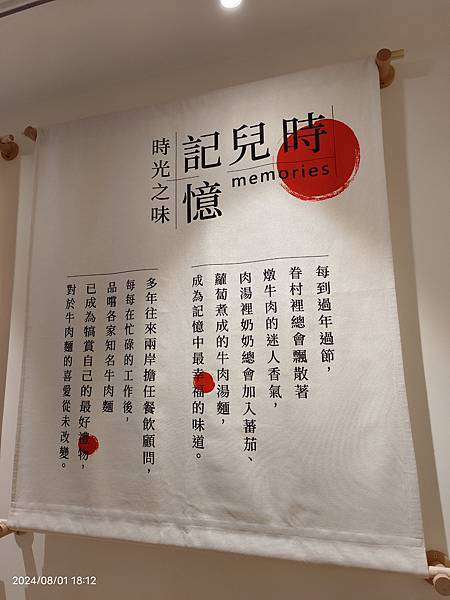 時兒記憶
memories
時光之味
每到過年過節，
眷村裡總會飄散著
燉牛肉的迷人香氣，
肉湯裡奶奶總會加入蕃茄、
蘿蔔煮成的牛肉湯麵，
成為記憶中最幸福的味道。
多年往來兩岸擔任餐飲顧問，
每每在忙碌的工作後，
品嚐各家知名牛肉麵
已成為犒賞自己的最好禮物，
對於牛肉麵的喜愛從未改變。
2024/08/01 18:12